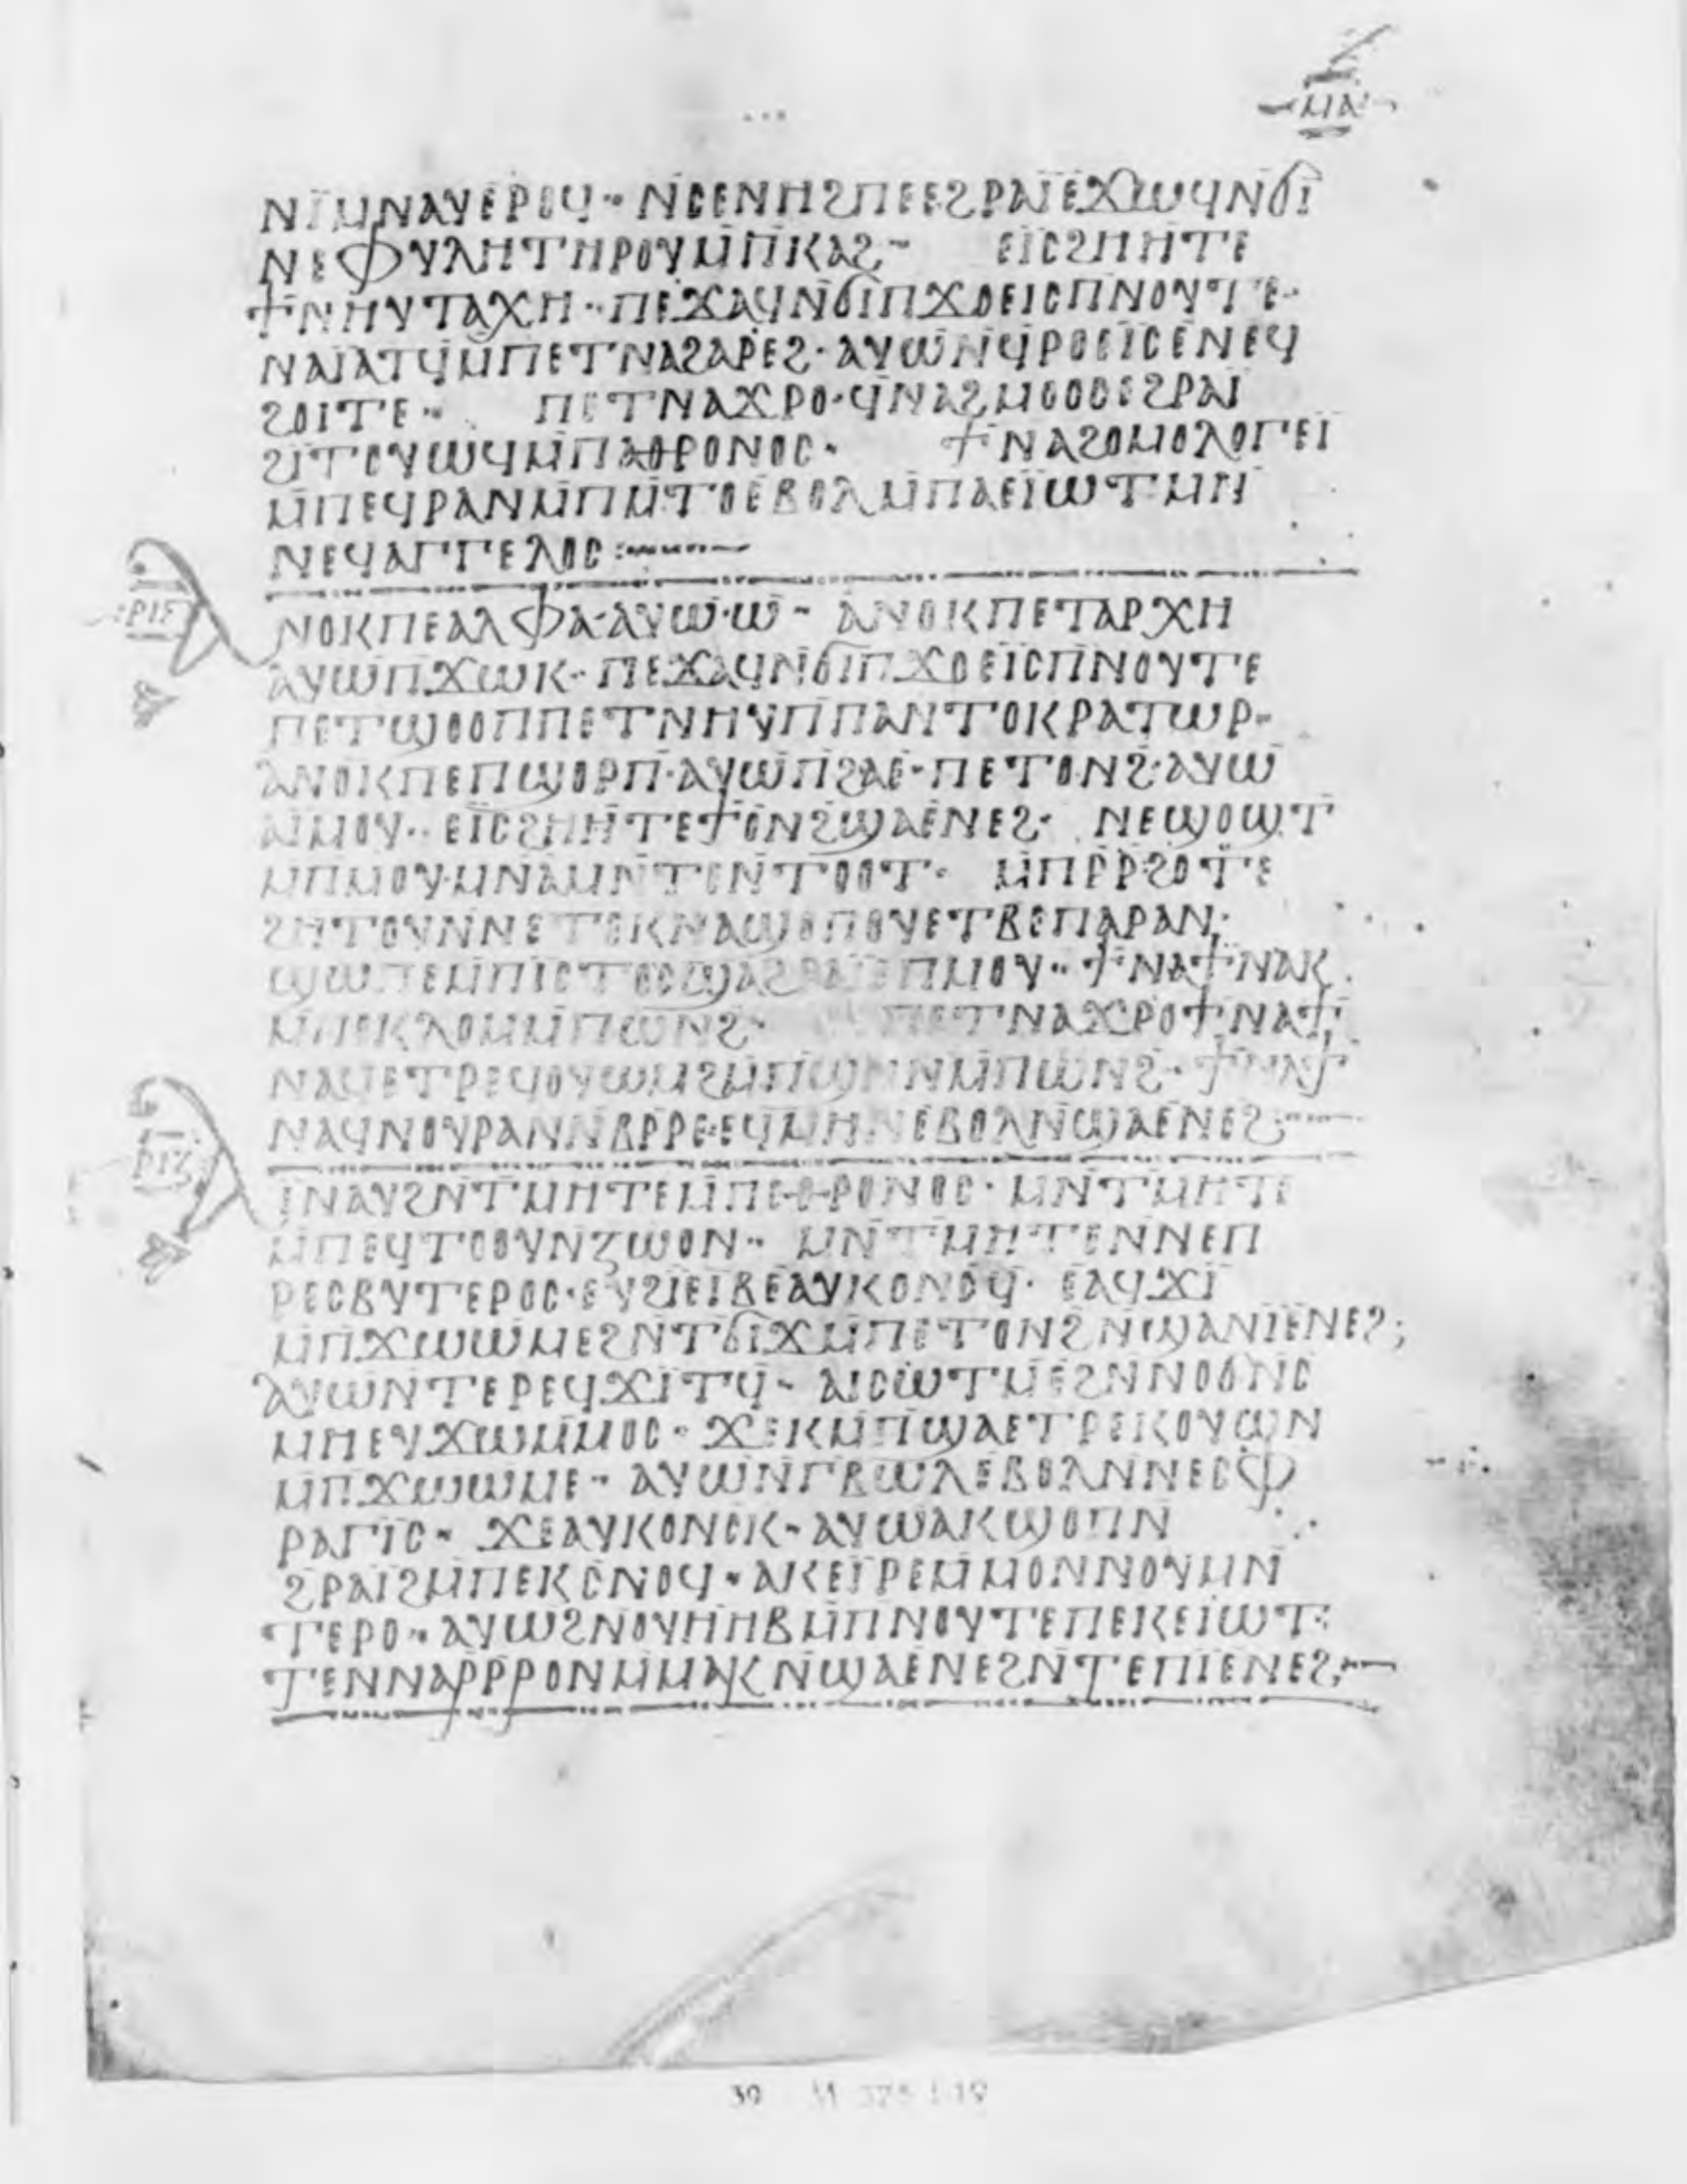 ⲙⲁ
ⲛⲓⲙⲛⲁⲩⲉⲣⲟϥ· ⲛ̄ⲥⲉⲛⲏϩⲡⲉⲉϩⲣⲁⲓ̈ⲉϫⲱϥⲛ̄ϭⲓ
ⲛⲉⲫⲩⲗⲏⲧⲏⲣⲟⲩⲙ̄ⲡⲕⲁϩ· ⲉⲓⲥϩⲏⲏⲧⲉ
ϯⲛⲏⲩⲧⲁⲭⲏ· ⲡⲉϫⲁϥⲛ̄ϭⲓⲡϫⲟⲉⲓⲥⲡⲛⲟⲩⲧⲉ·
ⲛⲁⲓ̈ⲁⲧϥ̄ⲙ̄ⲡⲉⲧⲛⲁϩⲁⲣⲉϩ· ⲁⲩⲱⲛ̄ϥⲣⲟⲉⲓⲥⲉⲛⲉϥ
ϩⲟⲓⲧⲉ· ⲡⲉⲧⲛⲁϫⲣⲟ·ϥⲛⲁϩⲙⲟⲟⲥⲉϩⲣⲁⲓ̈
ϩⲓⲧⲟⲩⲱϥⲙ̄ⲡⲁⲑⲣⲟⲛⲟⲥ· ϯⲛⲁϩⲟⲙⲟⲗⲟⲅⲉⲓ
ⲙ̄ⲡⲉϥⲣⲁⲛⲙ̄ⲡⲙ̄ⲧⲟⲉⲃⲟⲗⲙ̄ⲡⲁⲉⲓⲱⲧⲙⲛ̄
ⲛⲉϥⲁⲅⲅⲉⲗⲟⲥ:
ⲣⲓⲋ
ⲁⲛⲟⲕⲡⲉⲁⲗⲫⲁ·ⲁⲩⲱ·ⲱ· ⲁⲛⲟⲕⲡⲉⲧⲁⲣⲭⲏ
ⲁⲩⲱⲡϫⲱⲕ· ⲡⲉϫⲁϥⲛ̄ϭⲓⲡϫⲟⲉⲓⲥⲡⲛⲟⲩⲧⲉ
ⲡⲉⲧϣⲟⲟⲡⲡⲉⲧⲛⲏⲩⲡⲡⲁⲛⲧⲟⲕⲣⲁⲧⲱⲣ·
ⲁⲛⲟⲕⲡⲉⲡϣⲟⲣⲡ̄·ⲁⲩⲱⲡϩⲁⲉ·ⲡⲉⲧⲟⲛϩ̄·ⲁⲩⲱ
ⲁⲓ̈ⲙⲟⲩ· ⲉⲓⲥϩⲏⲏⲧⲉϯⲟⲛϩ̄ϣⲁⲉⲛⲉϩ· ⲛⲉϣⲟϣⲧ
ⲙⲡⲙⲟⲩ·ⲙⲛ̄ⲁⲙⲛ̄ⲧⲉⲛ̄ⲧⲟⲟⲧ· ⲙ̄ⲡⲣ̄ⲣϩⲟⲧⲉ
ϩⲏⲧⲟⲩⲛ̄ⲛⲉⲧⲉⲕⲛⲁϣⲟⲡⲟⲩⲉⲧⲃⲉⲡⲁⲣⲁⲛ·
ϣⲱⲡⲉⲙ̄ⲡⲓⲥⲧⲟⲥϣⲁϩⲣⲁⲓ̈ⲉⲡⲙⲟⲩ· ϯⲛⲁϯⲛⲁⲕ
ⲙ̄ⲡⲉⲕⲗⲟⲙⲙ̄ⲡⲱⲛϩ̄· ⲡⲉⲧⲛⲁϫⲣⲟϯⲛⲁϯ
ⲛⲁϥⲉⲧⲣⲉϥⲟⲩⲱⲙϩⲙ̄ⲡϣⲏⲛⲙ̄ⲡⲱⲛϩ̄· ϯⲛⲁϯ
ⲛⲁϥⲛⲟⲩⲣⲁⲛⲛ̄ⲃⲣ̄ⲣⲉ·ⲉϥⲙⲏⲛⲉⲃⲟⲗⲛ̄ϣⲁⲉⲛⲉϩ:
ⲣⲓⲍ
ⲁⲓ̈ⲛⲁⲩϩⲛ̄ⲧⲙⲏⲧⲉⲙ̄ⲡⲉⲑⲣⲟⲛⲟⲥ· ⲙⲛ̄ⲧⲙⲏⲧⲉ
ⲙ̄ⲡⲉϥⲧⲟⲟⲩⲛ̄ⲍⲱⲟⲛ· ⲙⲛ̄ⲧⲙⲏⲧⲉⲛ̄ⲛⲉⲡ
ⲣⲉⲥⲃⲩⲧⲉⲣⲟⲥ·ⲉⲩϩⲓⲉⲓⲃⲉⲁⲩⲕⲟⲛⲥϥ̄· ⲉⲁϥϫⲓ
ⲙ̄ⲡϫⲱⲱⲙⲉϩⲛ̄ⲧϭⲓϫⲙ̄ⲡⲉⲧⲟⲛϩ̄ⲛϣⲁⲛⲓⲉⲛⲉϩ;
ⲁⲩⲱⲛ̄ⲧⲉⲣⲉϥϫⲓⲧϥ̄· ⲁⲓⲥⲱⲧⲙ̄ⲉϩⲛ̄ⲛⲟϭⲛ̄ⲥ
ⲙⲏⲉⲩϫⲱⲙ̄ⲙⲟⲥ· ϫⲉⲕⲙ̄ⲡϣⲁⲉⲧⲣⲉⲕⲟⲩⲱⲛ
ⲙ̄ⲡϫⲱⲱⲙⲉ· ⲁⲩⲱⲛ̄ⲅⲃⲱⲗⲉⲃⲟⲗⲛ̄ⲛⲉⲥⲫ
ⲣⲁⲅⲓⲥ· ϫⲉⲁⲩⲕⲟⲛⲥⲕ·ⲁⲩⲱⲁⲕϣⲟⲡⲛ̄
ϩⲣⲁⲓ̈ϩⲙ̄ⲡⲉⲕⲥⲛⲟϥ·ⲁⲕⲉⲓⲣⲉⲙ̄ⲙⲟⲛⲛⲟⲩⲙⲛ̄
ⲧⲉⲣⲟ· ⲁⲩⲱϩⲛⲟⲩⲏⲏⲃⲙ̄ⲡⲛⲟⲩⲧⲉⲡⲉⲕⲉⲓⲱⲧ:
ⲧⲉⲛⲛⲁⲣ̄ⲣⲣⲟⲛⲙ̄ⲙⲁⲕⲛ̄ϣⲁⲉⲛⲉϩⲛ̄ⲧⲉⲡⲓⲉⲛⲉϩ: